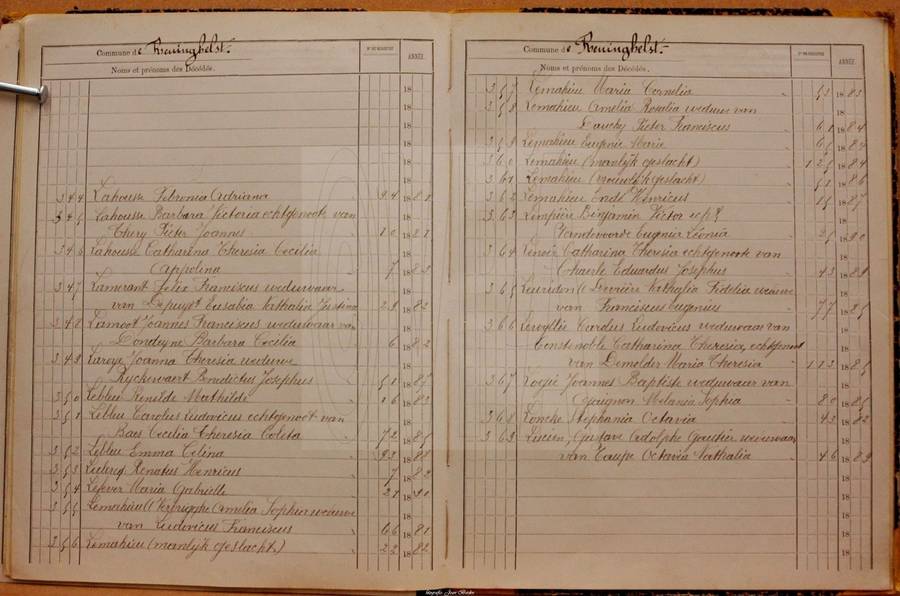 Commune de Reninghelst.
Noms et prénoms des Décédés.
ANNÉE
344 Lahousse Petronia Adriana 34 1881
345 Lahousse Barbara Victoria echtgenoote van
Thery Pieter Joannes 10 1881
346 Lahousse Catharina Theresia Cecilia
Appolina 7 1883
347 Lamerant Felix Franciscus weduwaar
van Depuydt Eusabia Nathalia Justina 29 1882
348 Lamoot Joannes Franciscus weduwaar van
Dondeyne Barbara Cecilia 6 1882
349 Laroye Joanna Theresia weduwe
Ryckewaert Benedictus Josephus 51 1887
350 Lebleu Renilde Mathilde 16 1883
351 Lebleu Carolus Ludovicus echtgenoot van
Baes Cecilia Theresia Coleta 72 1885
352 Lebleu Emma Celina 93 1888
353 Leclercq Renatus Henricus 7 1882
354 Lefever Maria Gabrielle 21 1890
355 Lemahieu Verbrugghe Amelia Sophia weduwe
van Ludovicus Franciscus 66 1881
356 Lemahieu (manlijk geslacht) 22 1882
Commune de Reninghelst.
Noms et prénoms des Décédés.
ANNÉE
357 Lemahieu Maria Cornelia 53 1883
358 Lemahieu Amelia Rosalia weduwe van
Dauchy Pieter Franciscus 61 1884
359 Lemahieu Eugenie Marie 65 1884
360 Lemahieu (manlijk geslacht) 125 1884
361 Lemahieu (vrouwelijk geslacht) 51 1886
362 Lemahieu Henricus 15 1887
363 Lempiere Benjamin Victor
Vandevoorde Eugenia Leonia 25 1890
364 Lenoir Catharina Theresia echtgenoote van
Charle Eduardus Josephus 43 1881
365 Nathalia Fidelia weduwe
van Franciscus Eugenius 77 1885
366 Carolus Ludovicus weduwaar van
Constenoble Catharina Theresia, echtgenoot
van Demolder Maria Theresia 113 1885
367 Joannes Baptiste weduwaar van
Melania Sophia 80 1885
368 Loncke Stephania Octavia 43 1882
369 Lucien, Gustave Adolphe Gautier weduwaar
van Taupe Octavia Nathalia 46 1889